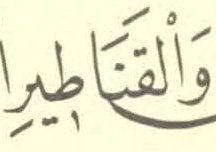 وَالْقَنَاطِيرِا